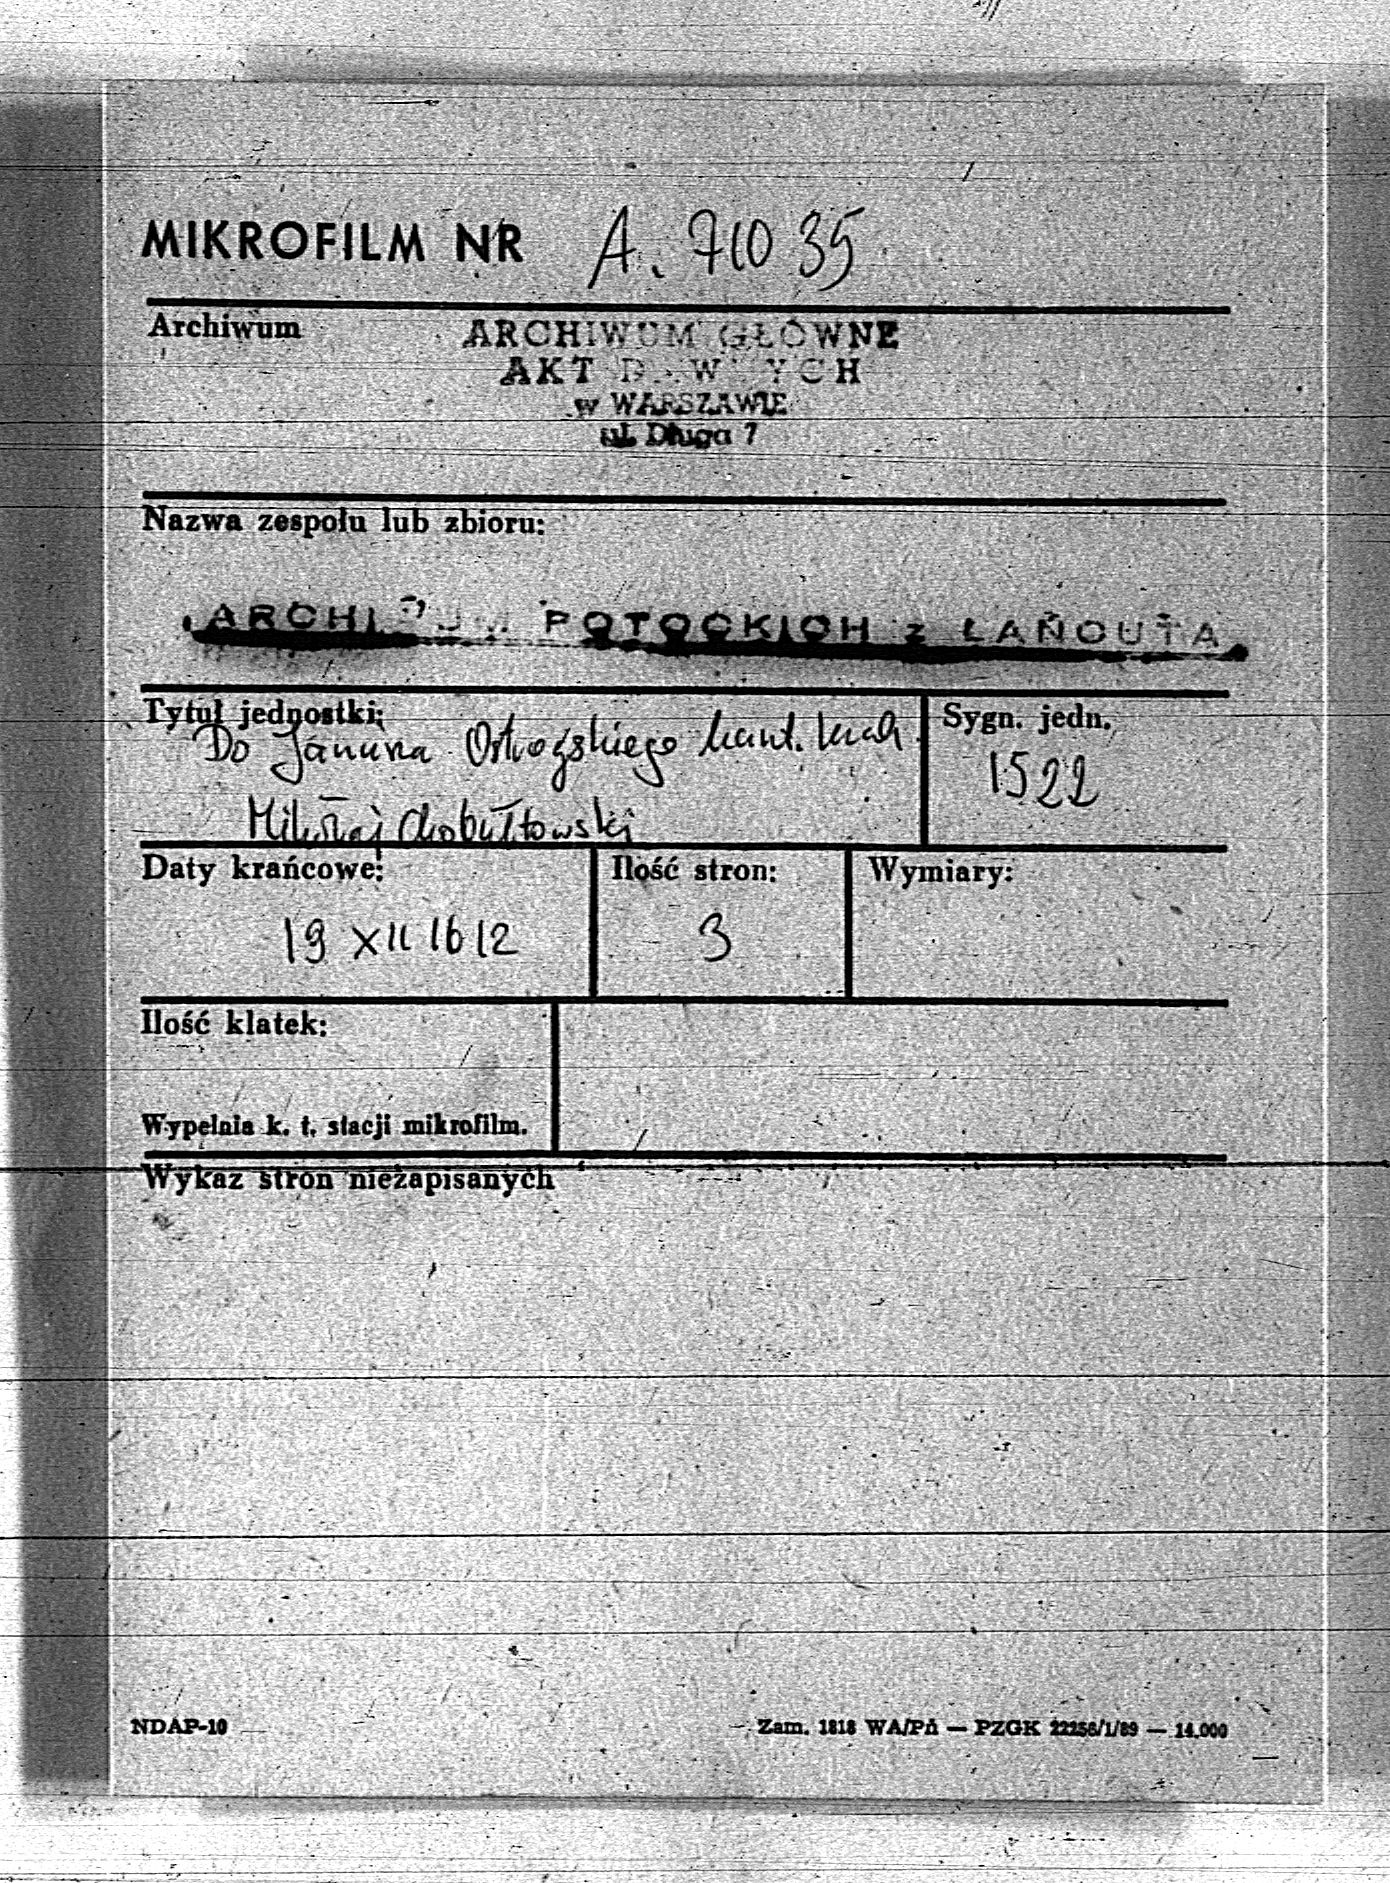 MIKROFILM NR A. 71035
Archiwum
ARCHIWUM GŁÓWNE
AKT DAWNYCH
w WARSZAWIE
ul. Długa 7
Nazwa zespołu lub zbioru:
ARCHIWUM POTOCKICH z ŁAŃCUTA
Tytuł jednostki:
Do Janusza Ostrogskiego kaszt. krak.
Mikołaj
Sygn. jedn.
1522
Daty krańcowe:
19 XII 1612
Ilość stron:
3
Wymiary:
Ilość klatek:
Wypełnia k. t. stacji mikrofilm.
Wykaz stron niezapisanych
NDAP-10
Zam. 1818 WA/Pń — PZGK 22256/1/89 — 14.000